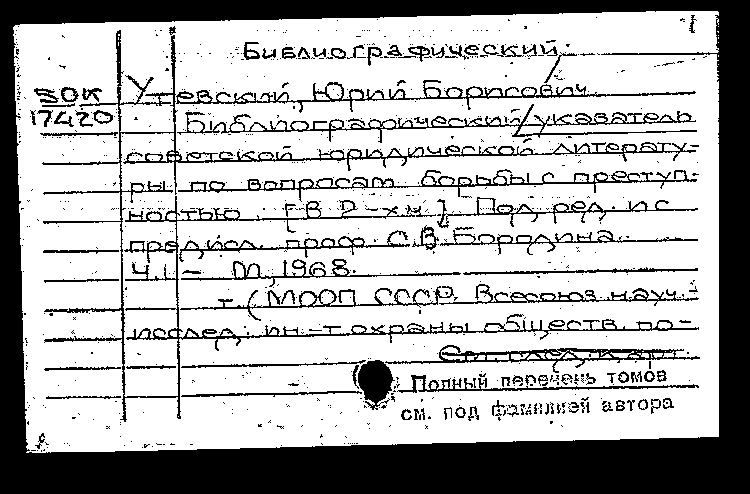 Библиографический
SOK Утевский, Юрий Борисович
17420 Библиографический указатель
советской юридической литерату-
ры по вопросам борьбы с преступ-
ностью. [В 2-х ч.] Под ред. и с
предисл. проф. С.В. Бородина.
Ч.1 - М., 1968.
т. (МООП СССР. Всесоюз. науч.-
исслед. ин-т охраны обществ. по-
См. след. карт.
Полный перечень томов
см. под фамилией автора